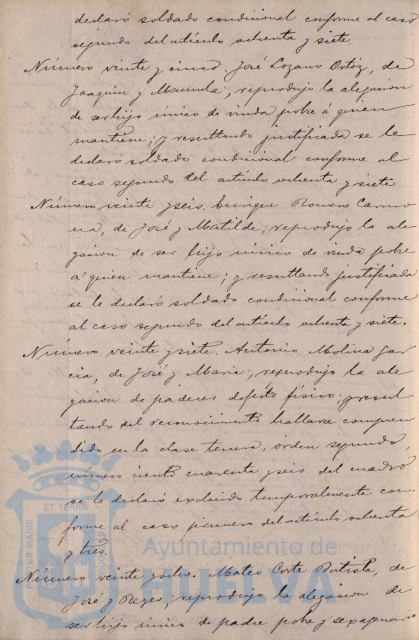 declaró soldado condicional conforme al caso
segundo del artículo ochenta y siete
Número veinte y cinco. José Lozano Ortiz, de
Joaquin y Manuela, reprodujo la alegacion
de ser hijo unico de viuda pobre á quien
mantiene; y resultando justificada se le
declaró soldado condicional conforme al
caso segundo del artículo ochenta y siete
Número veinte y seis. Enrique Romero Carmo
na, de José y Matilde; reprodujo la ale
gacion de ser hijo único de viuda pobre
á quien mantiene; y resultando justificada
se le declaró soldado condicional conforme
al caso segundo del artículo ochenta y siete.
Número veinte y siete. Antonio Molina Gar
cia, de José y Maria; reprodujo la ale
gacion de padecer defecto físico; y resul
tando del reconocimiento hallarse compren
dido en la clase tercera, órden segundo,
número ciento cuarenta y seis del cuadro
se le declaró excluido temporalmente con
forme al caso primero del artículo ochenta
y tres.
Número veinte y ocho. Mateo Corte Batista, de
José y Reyes; reprodujo la alegacion de
ser hijo único de padre pobre y sexagenario
Ayuntamiento de
HUELVA